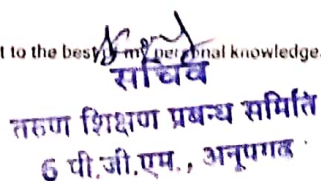 t to the best my personal knowledge.
सचिव
तरुण शिक्षण प्रबन्ध समिति
6 पी.जी.एम., अनूपगढ़